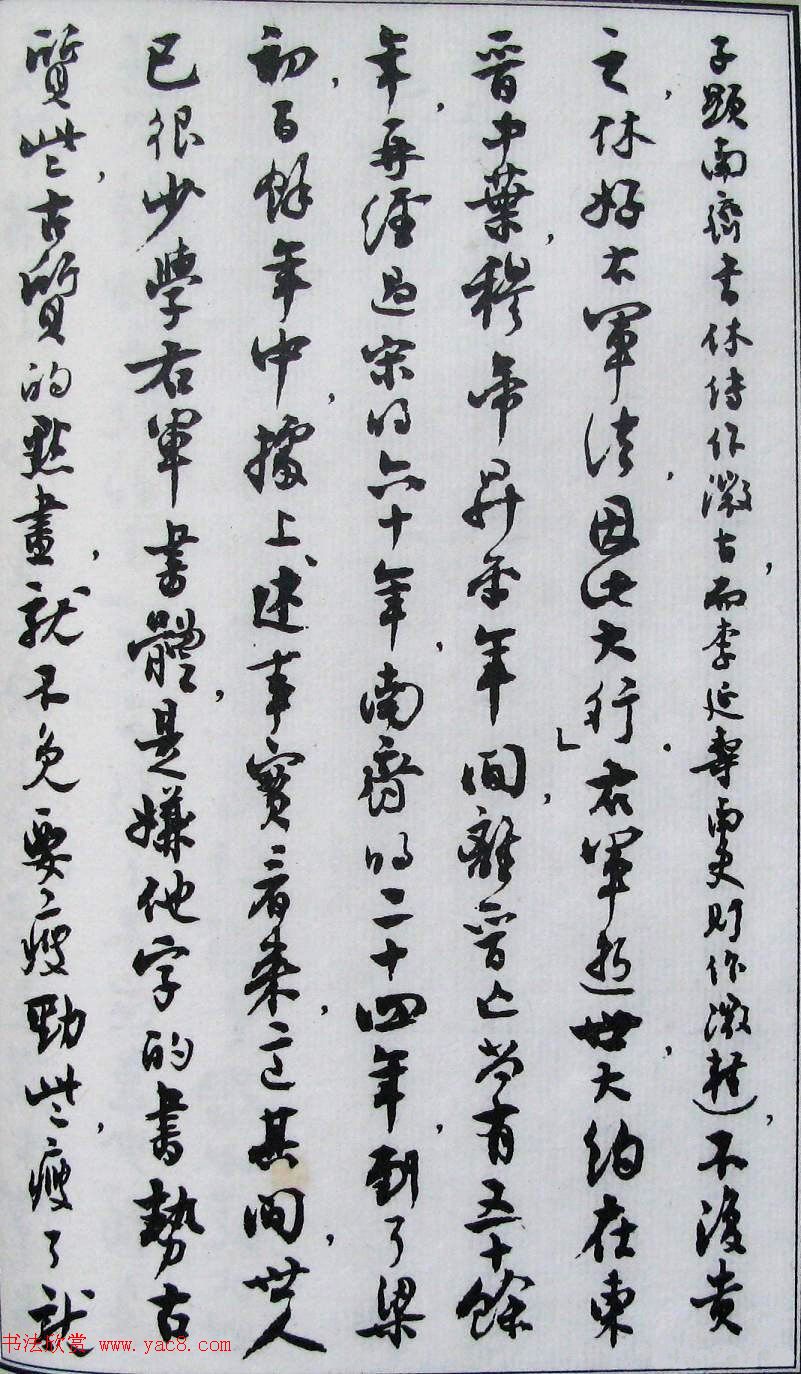 子顯南齊書休傳作微古，而李延壽南史則作微輕），不復貴
之，休好右軍法，因此大行」。右軍逝世，大約在東
晉中葉，穆帝昇平年間，離晉亡尚有五十餘
年，再經過宋的六十年，南齊的二十四年，到了梁
初，百餘年中，據上述事實看來，這其間，世人
已很少學右軍書體，是嫌他字的書勢古
質些，古質的點畫，就不免要瘦勁些，瘦了就
书法欣赏 www.yac8.com